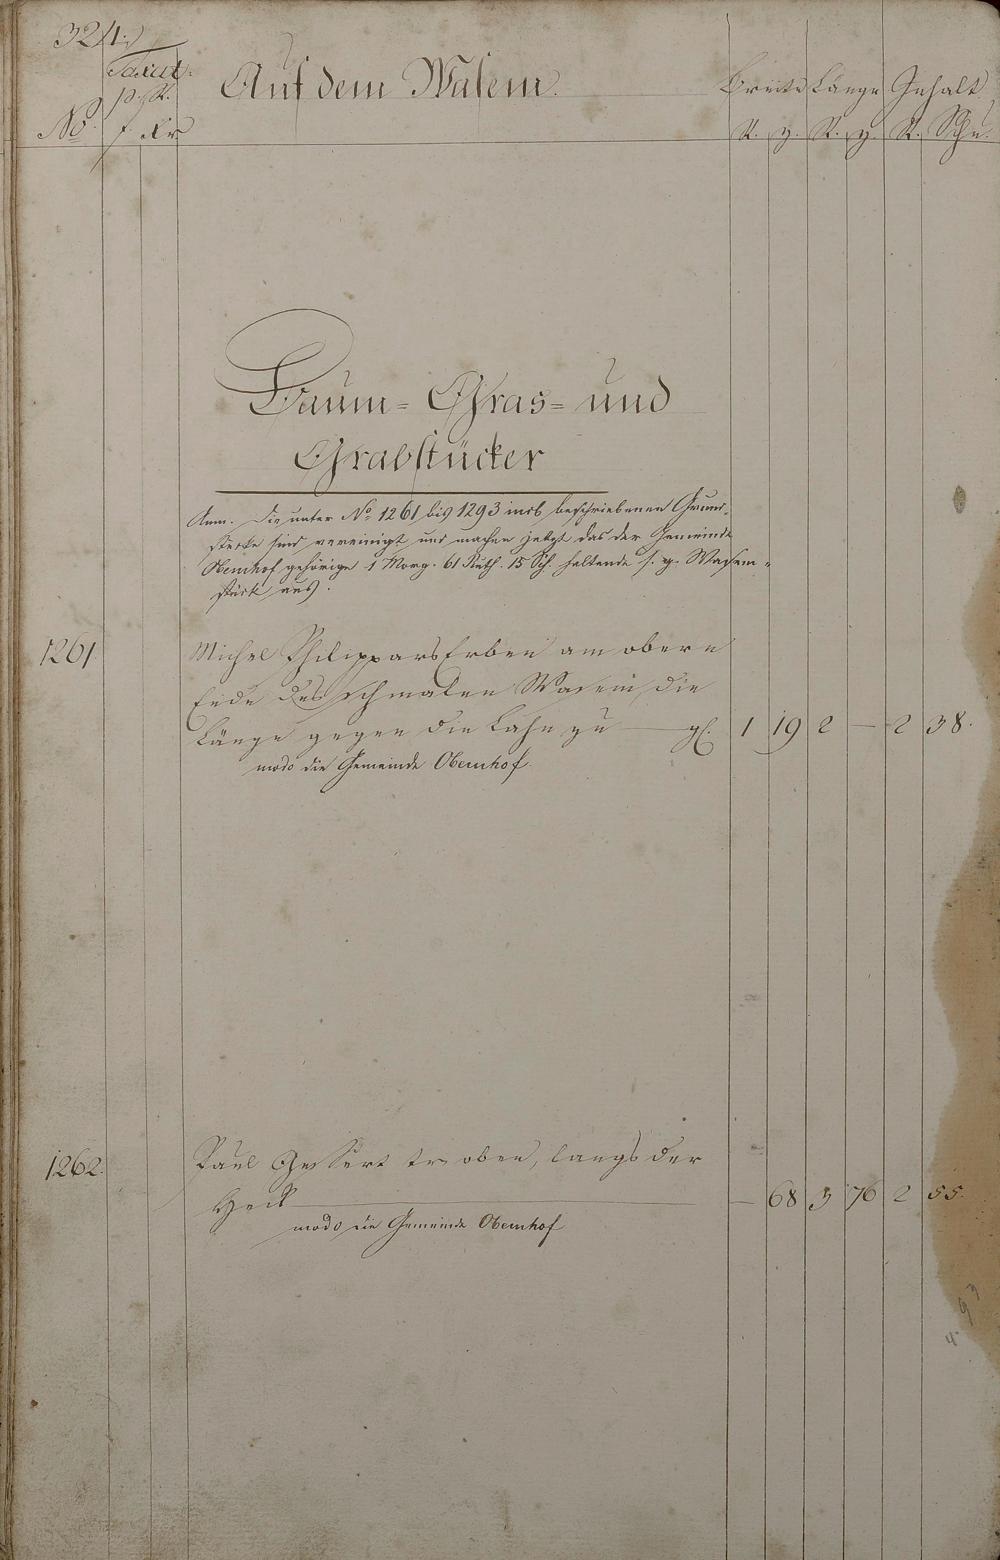 324.
Taxat.
p. R.
No. f. Xr
Auf dem Wasem.
Breite Länge Inhalt
R. z. R. z. R. Schu.
Baum- Gras- und
Grabstücker
Anm. Die unter No. 1261 bis 1293 incl. beschriebenen Grund-
stücke sind vereinigt und machen jetzt das der Gemeinde
Obernhof gehörige 1 Morg. 61 Ruth. 15 Sch. haltende s. g. Wasem-
stück aus.
1261 Michel Philippars Erben am obern
Ende des schmalen Wasem, die
Länge gegen die Lahn zu — gl. 1 19 2 — 2 38.
modo die Gemeinde Obernhof
1262. Paul oben, langs der
Heck — — 68 3 76 2 55.
modo die Gemeinde Obernhof
4 93